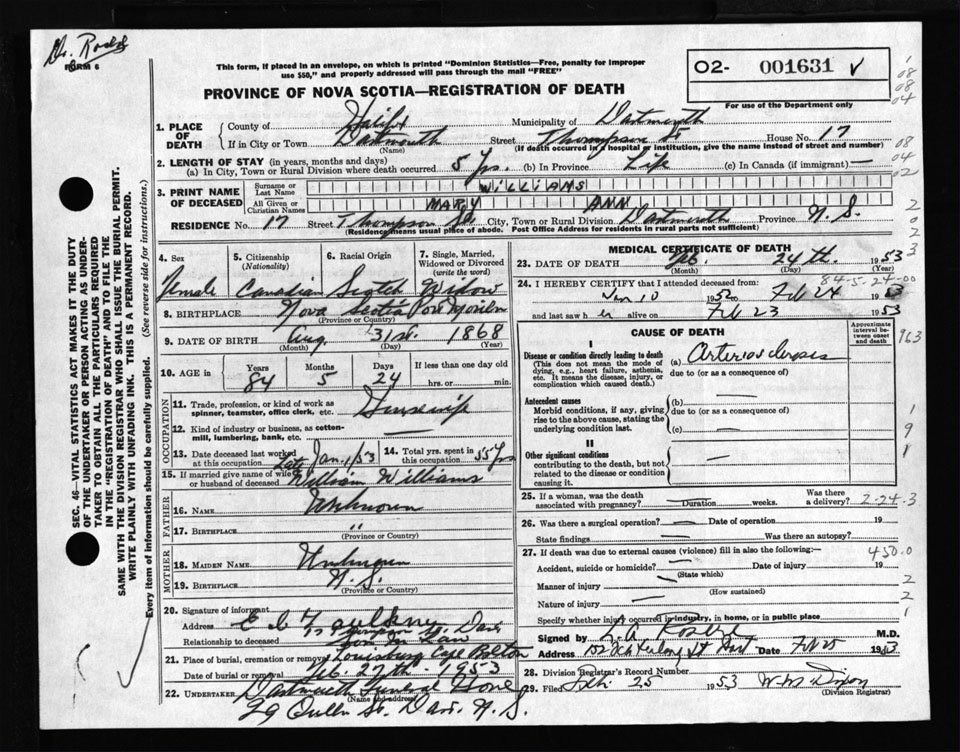 Dr. Rodd
FORM 6
This form, if placed in an envelope, on which is printed "Dominion Statistics—Free, penalty for improper
use $50," and properly addressed will pass through the mail "FREE"
O2- 001631
PROVINCE OF NOVA SCOTIA—REGISTRATION OF DEATH
For use of the Department only
1. PLACE OF DEATH
County of Halifx Municipality of Dartmouth
If in City or Town Dartmouth Street Thompson St House No. 17
(Name) (If death occurred in a hospital or institution, give the name instead of street and number)
2. LENGTH OF STAY (in years, months and days)
(a) In City, Town or Rural Division where death occurred 5 Yrs. (b) In Province Life (c) In Canada (if immigrant) —
3. PRINT NAME OF DECEASED
Surname or Last Name WILLIAMS
All Given or Christian Names MARY ANN
RESIDENCE No. 17 Street Thompson St. City, Town or Rural Division Dartmouth Province N.S.
(Residence means usual place of abode. Post Office Address for residents in rural parts not sufficient)
SEC. 46—VITAL STATISTICS ACT MAKES IT THE DUTY
OF THE UNDERTAKER OR PERSON ACTING AS UNDER-
TAKER TO OBTAIN ALL THE PARTICULARS REQUIRED
IN THE "REGISTRATION OF DEATH" AND TO FILE THE
SAME WITH THE DIVISION REGISTRAR WHO SHALL ISSUE THE BURIAL PERMIT.
WRITE PLAINLY WITH UNFADING INK. THIS IS A PERMANENT RECORD.
Every item of information should be carefully supplied. (See reverse side for instructions.)
4. Sex Female
5. Citizenship (Nationality) Canadian
6. Racial Origin Scotch
7. Single, Married, Widowed or Divorced (write the word) Widow
8. BIRTHPLACE Nova Scotia Port Morien
(Province or Country)
9. DATE OF BIRTH Aug. 31st. 1868
(Month) (Day) (Year)
10. AGE in Years 84 Months 5 Days 24 If less than one day old hrs. or min.
OCCUPATION
11. Trade, profession, or kind of work as spinner, teamster, office clerk, etc. Housewife
12. Kind of industry or business, as cotton-mill, lumbering, bank, etc. —
13. Date deceased last worked at this occupation Late Jan. 1/53 14. Total yrs. spent in this occupation 55 Yrs
15. If married give name of wife or husband of deceased William Williams
FATHER
16. Name Unknown
17. Birthplace "
(Province or Country)
MOTHER
18. MAIDEN NAME Unknown
19. BIRTHPLACE N.S.
(Province or Country)
20. Signature of informant E C Faulkner
Address 17 Thompson St. Dart
Relationship to deceased Son in Law
21. Place of burial, cremation or removal Louisburg Cape Breton
Date of burial or removal Feb. 27th. 1953
22. UNDERTAKER Dartmouth Funeral Home
(Name and address)
29 Queen St. Dart. N.S.
MEDICAL CERTIFICATE OF DEATH
23. DATE OF DEATH Feb. 24th. 1953
(Month) (Day) (Year)
84-5-24-00
24. I HEREBY CERTIFY that I attended deceased from:
Jan 10 1952 to Feb 24 1953
and last saw h er alive on Feb 23 1953
CAUSE OF DEATH
Approximate interval between onset and death
I
Disease or condition directly leading to death (a) Arteriosclerosis
(This does not mean the mode of dying, e.g., heart failure, asthenia, etc. It means the disease, injury, or complication which caused death.)
due to (or as a consequence of)
Antecedent causes (b) —
Morbid conditions, if any, giving rise to the above cause, stating the underlying condition last.
due to (or as a consequence of)
(c) —
II
Other significant conditions —
contributing to the death, but not related to the disease or condition causing it.
25. If a woman, was the death associated with pregnancy? — Duration weeks. Was there a delivery? 2-24-3
26. Was there a surgical operation? — Date of operation 19
State findings — Was there an autopsy?
27. If death was due to external causes (violence) fill in also the following:— 450.0
Accident, suicide or homicide? — Date of injury 19
(State which)
Manner of injury —
(How sustained)
Nature of injury —
Specify whether injury occurred in industry, in home, or in public place
Signed by M.D.
Address Dart Date Feb 25 1953
28. Division Registrar's Record Number
29. Filed Feb. 25 1953 W. M. Dixon
(Division Registrar)